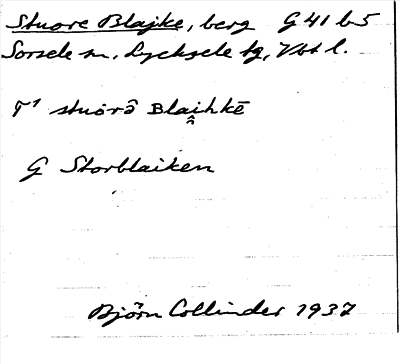 Stuore Blajke, berg G 41 b5
Sorsele sn, Lycksele tg, Vbt l.
T¹ stuörɔ̂ Blai̭hkē
G Storblaiken
Björn Collinder 1937